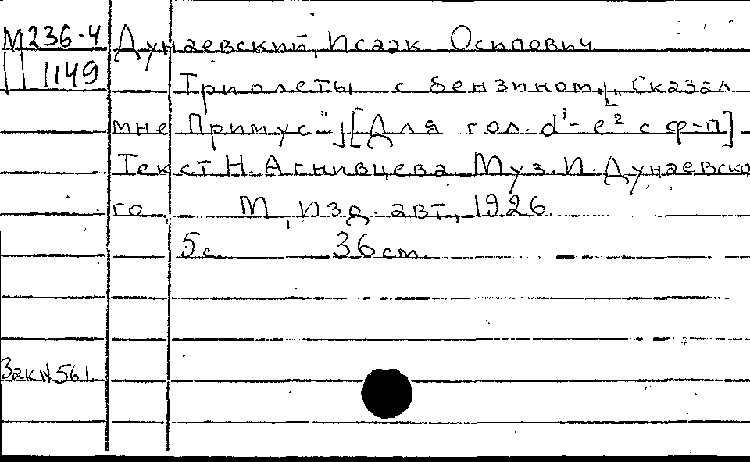 М236-4 Дунаевский, Исаак Осипович
1149 Триолеты с бензином. [„Сказал
мне Примус“] [Для гол. d¹-e² с ф-п].
Текст Н. Агнивцева Муз. И. Дунаевско
го М, изд. авт., 1926.
5с. 36 см.
Зак № 561.